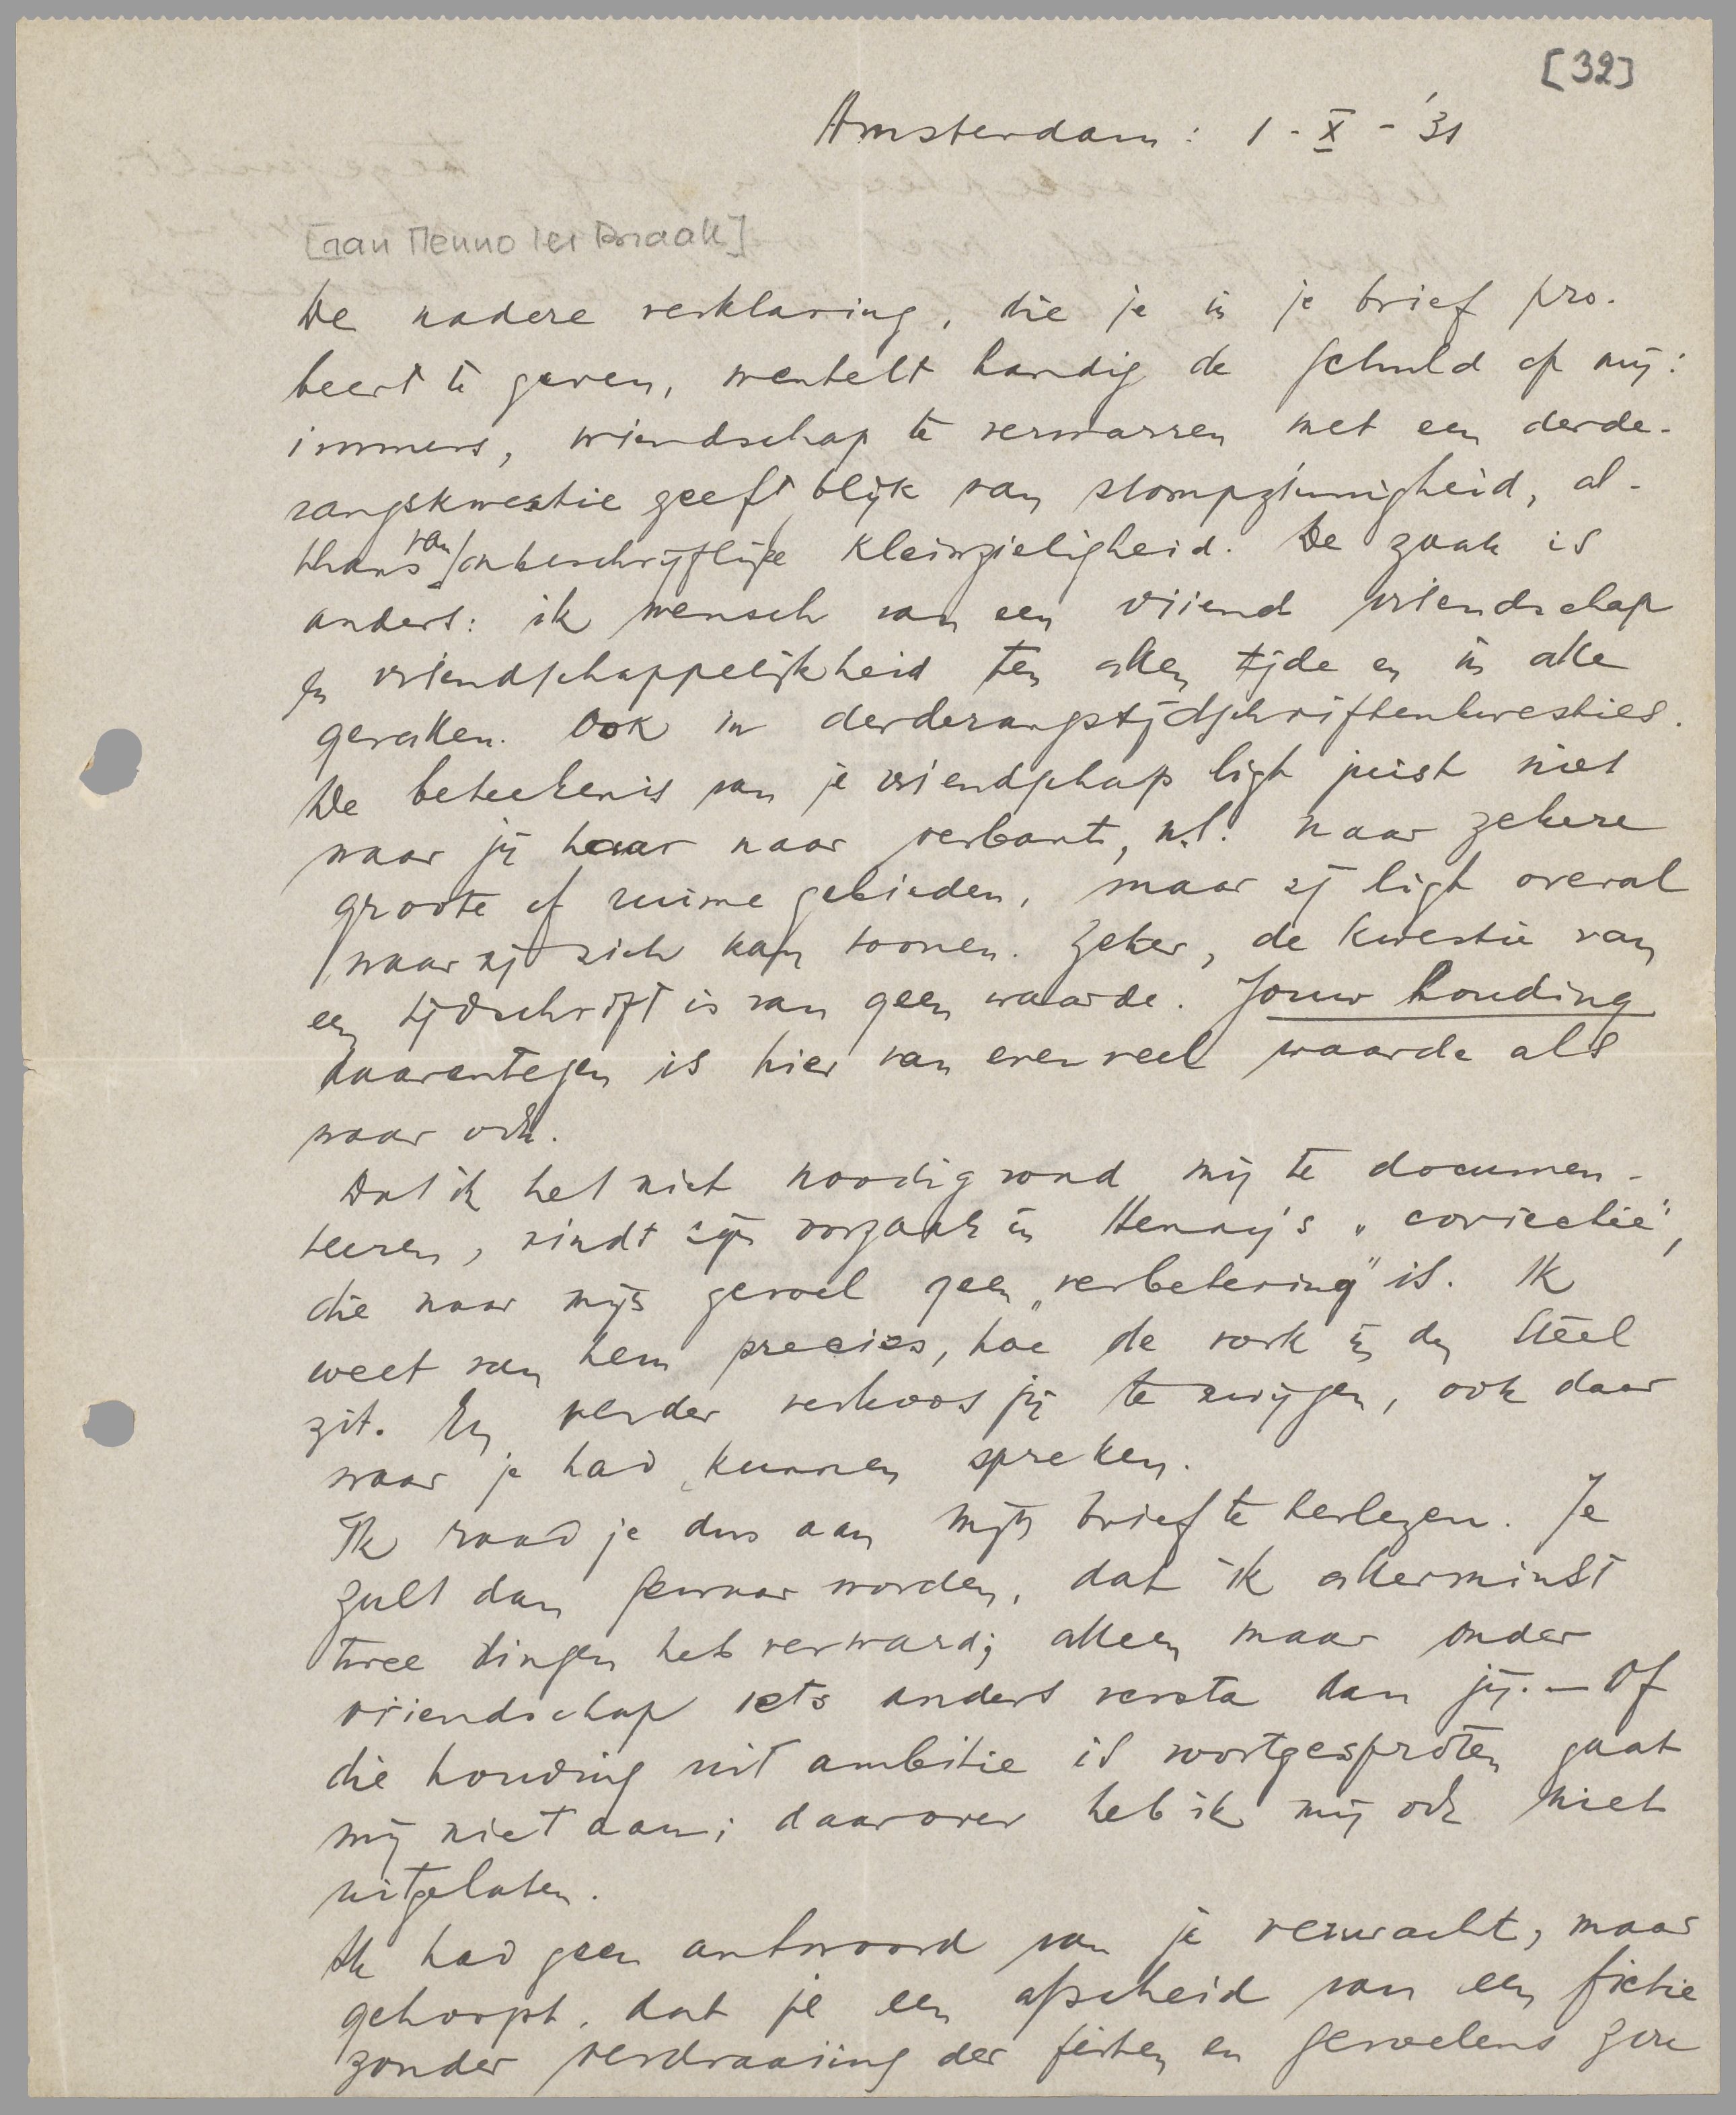 [32]
Amsterdam: 1-X-'31
[aan Menno ter Braak]
De nadere verklaring, die je in je brief pro-
beert te geven, wentelt handig de schuld op mij:
immers, vriendschap te verwarren met een derde-
rangskwestie geeft blijk van stompzinnigheid, al-
thans van onbeschrijflijke kleinzieligheid. De zaak is
anders: ik wensch van een vriend vriendschap
en vriendschappelijkheid ten allen tijde en in alle
gevallen. Ook in derderangstijdschriftenkwesties.
De beteekenis van je vriendschap ligt juist niet
waar jij haar naar verbant, n.l. naar zekere
groote of ruime gebieden, maar zij ligt overal
waar zij zich kan toonen. Zeker, de kwestie van
een tijdschrift is van geen waarde. Jouw houding
daarentegen is hier van evenveel waarde als
waar ook.
Dat ik het niet noodig vond mij te documen-
teeren, vindt zijn oorzaak in Henny's „correctie",
die naar mijn gevoel geen „verbetering" is. Ik
weet van hem precies, hoe de vork in den steel
zit. En verder verkoos jij te zwijgen, ook daar
waar je had kunnen spreken.
Ik raad je dus aan mijn brief te herlezen. Je
zult dan gewaar worden, dat ik allerminst
twee dingen heb verward; alleen maar onder
vriendschap iets anders versta dan jij. — Of
die houding uit ambitie is voortgesproten gaat
mij niet aan; daarover heb ik mij ook niet
uitgelaten.
Ik had geen antwoord van je verwacht, maar
gehoopt, dat je een afscheid van een fictie
zonder verdraaiing der feiten en gevoelens zou